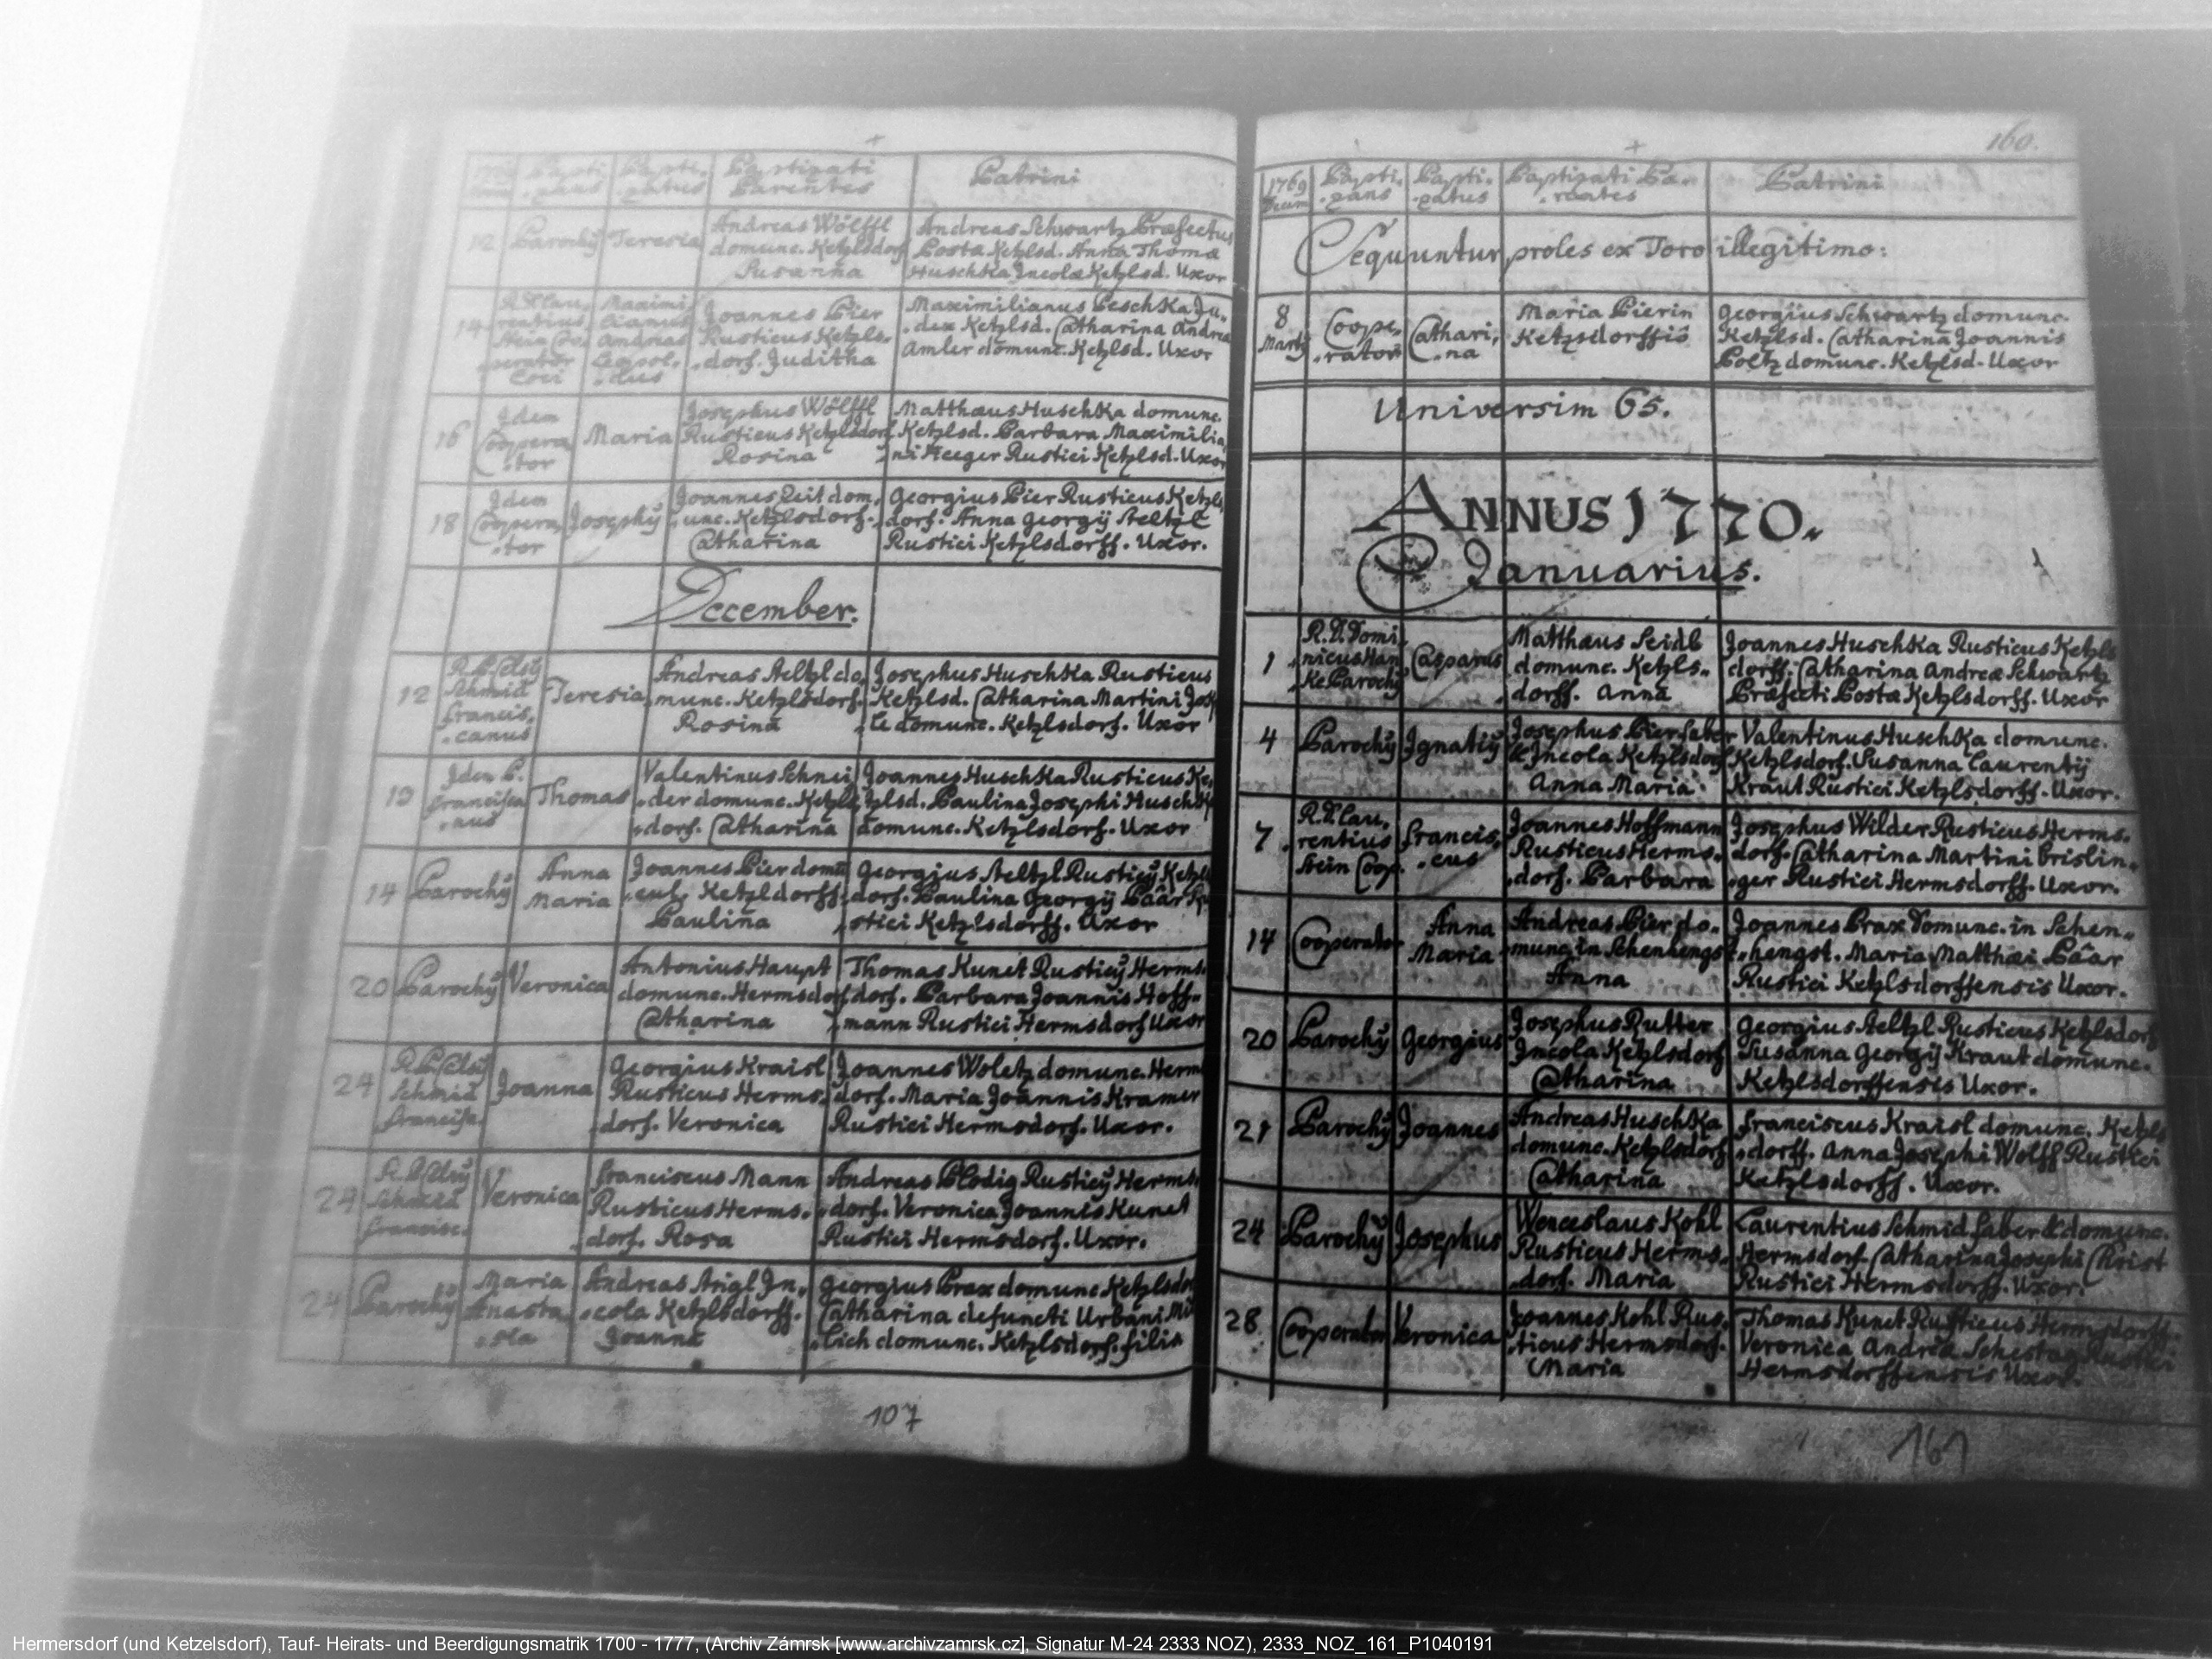 +
Bapti
.zans
Bapti.
.zatus
Baptizati
Parentes
Patrini
12
Parochÿ
Teresia
Andreas Wölffl
domunc. Ketzlsdorf
Susanna
Andreas Schwartz Præfectus
Posta Ketzlsd. Anna Thomæ
Huschka Incolæ Ketzlsd. Uxor
14
R.D. Lau,
rentius
Stein Coo,
perator
Loci
Maximi
lianus
Andreas
Leopol,
dus
Joannes Pier
Rusticus Ketzls,
dorf. Juditha
Maximilianus Peschka Ju,
dex Ketzlsd. Catharina Andreæ
Amler domunc. Ketzlsd. Uxor
16
Idem
Coopera
tor
Maria
Josephus Wölffl
Rusticus Ketzlsdorf
Rosina
Matthæus Huschka domunc.
Ketzlsd. Barbara Maximilia
ni Heeger Rustici Ketzlsd. Uxor
18
Idem
Coopera,
tor
Josephÿ
Joannes Zeit dom,
unc. Ketzlsdorf.
Catharina
Georgius Pier Rusticus Ketzls
dorf. Anna Georgÿ Aeltzl
Rustici Ketzlsdorff. Uxor.
December.
12
Schmid
Francis,
canus
Teresia
Andreas Aeltzl do,
munc. Ketzlsdorf.
Rosina
Josephus Huschka Rusticus
Ketzlsd. Catharina Martini
domunc. Ketzlsdorf. Uxor
13
Idem P.
Francisca
nus
Thomas
Valentinus Schnei
der domunc. Ketzls
dorf. Catharina
Joannes Huschka Rusticus Ke,
tzlsd. Paulina Josephi Huschk
domunc. Ketzlsdorf. Uxor
14
Parochÿ
Anna
Maria
Joannes Pier domu
cul. Ketzldorff.
Paulina
Georgius Aeltzl Rusticÿ Ketzls
dorf. Paulina Georgÿ Päär Ru
stici Ketzlsdorff. Uxor
20
Parochÿ
Veronica
Antonius Haupt
domunc. Hermsdorf
Catharina
Thomas Kunct Rusticÿ Herms,
dorf. Barbara Joannis Hoff,
mann Rustici Hermsdorf Uxor
24
Schmid
Francisc.
Joanna
Georgius Kraisl
Rusticus Herms,
dorf. Veronica
Joannes Woletz domunc. Herm
dorf. Maria Joannis Kramer
Rustici Hermsdorf. Uxor.
24
Schmid
Francisc.
Veronica
Franciscus Mann
Rusticus Herms,
dorf. Rosa
Andreas Plodig Rusticÿ Herms,
dorf. Veronica Joannis Kunct
Rustici Hermsdorf. Uxor.
24
Parochÿ
Maria
Anasta,
sia
Andreas Arigl In,
cola Ketzlsdorff.
Joanna
Georgius Prax domunc Ketzlsdorf
Catharina defuncti Urbani Mi
lich domunc. Ketzlsdorf. filia
107
160.
+
1769
Decem
Bapti.
.zans
Bapti.
.zatus
Baptizati Pa.
.rentes
Patrini
Sequuntur proles ex Toro illegitimo:
8
Martÿ
Coope,
rator
Cathari,
na
Maria Pierin
Ketzsdorffiô
Georgius Schwartz domunc.
Ketzlsd. Catharina Joannis
Poltz domunc. Ketzlsd. Uxor
Universim 65.
ANNUS 1770.
Januarius.
1
R.D. Domi,
nicus Han
ke Parochÿ
Casparus
Matthæus Seidl
domunc. Ketzls,
dorff. Anna
Joannes Huschka Rusticus Ketzls
dorff. Catharina Andreæ Schwartz
Præfecti Posta Ketzlsdorff. Uxor
4
Parochÿ
Ignatiÿ
Josephus Pier faber
& Incola Ketzlsdorf
Anna Maria
Valentinus Huschka domunc.
Ketzlsdorf. Susanna Laurentÿ
Kraut Rustici Ketzlsdorff. Uxor.
7
R.D. Lau,
rentius
Stein Coop.
Francis,
cus
Joannes Hoffmann
Rusticus Herms,
dorf. Barbara
Josephus Wilder Rusticus Herms.
dorf. Catharina Martini Brislin,
ger Rustici Hermsdorff. Uxor.
14
Cooperator
Anna
Maria
Andreas Pier do,
munc in Schenhengst
Anna
Joannes Prax Domunc. in Schen,
hengst. Maria Matthæi Päär
Rustici Ketzlsdorffensis Uxor.
20
Parochÿ
Georgius
Josephus Rutter
Incola Ketzlsdorf
Catharina
Georgius Aeltzl Rusticus Ketzlsdorf
Susanna Georgÿ Kraut domunc.
Ketzlsdorffensis Uxor.
21
Parochÿ
Joannes
Andreas Huschka
domunc. Ketzlsdorf
Catharina
Franciscus Kraisl domunc. Ketzls
dorff. Anna Josephi Wolff Rustici
Ketzlsdorff. Uxor.
24
Parochÿ
Josephus
Wenceslaus Kohl
Rusticus Herms,
dorf. Maria
Laurentius Schmid faber & domunc.
Hermsdorf. Catharina Josephi Christ
Rustici Hermsdorff. Uxor.
28
Cooperator
Veronica
Joannes Kohl Rus,
ticus Hermsdorf.
Maria
Thomas Kunct Rusticus Hermsdorff.
Veronica Andreæ Schestag Rustici
Hermsdorffensis Uxor.
161
Hermersdorf (und Ketzelsdorf), Tauf- Heirats- und Beerdigungsmatrik 1700 - 1777, (Archiv Zámrsk [www.archivzamrsk.cz], Signatur M-24 2333 NOZ), 2333_NOZ_161_P1040191